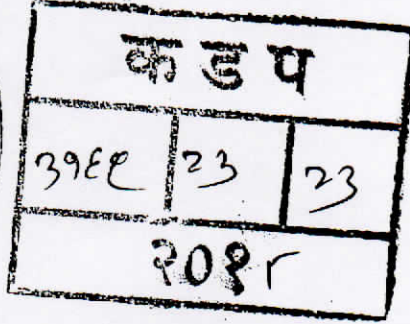 क ड प
३१६९ २३ २३
२०१८